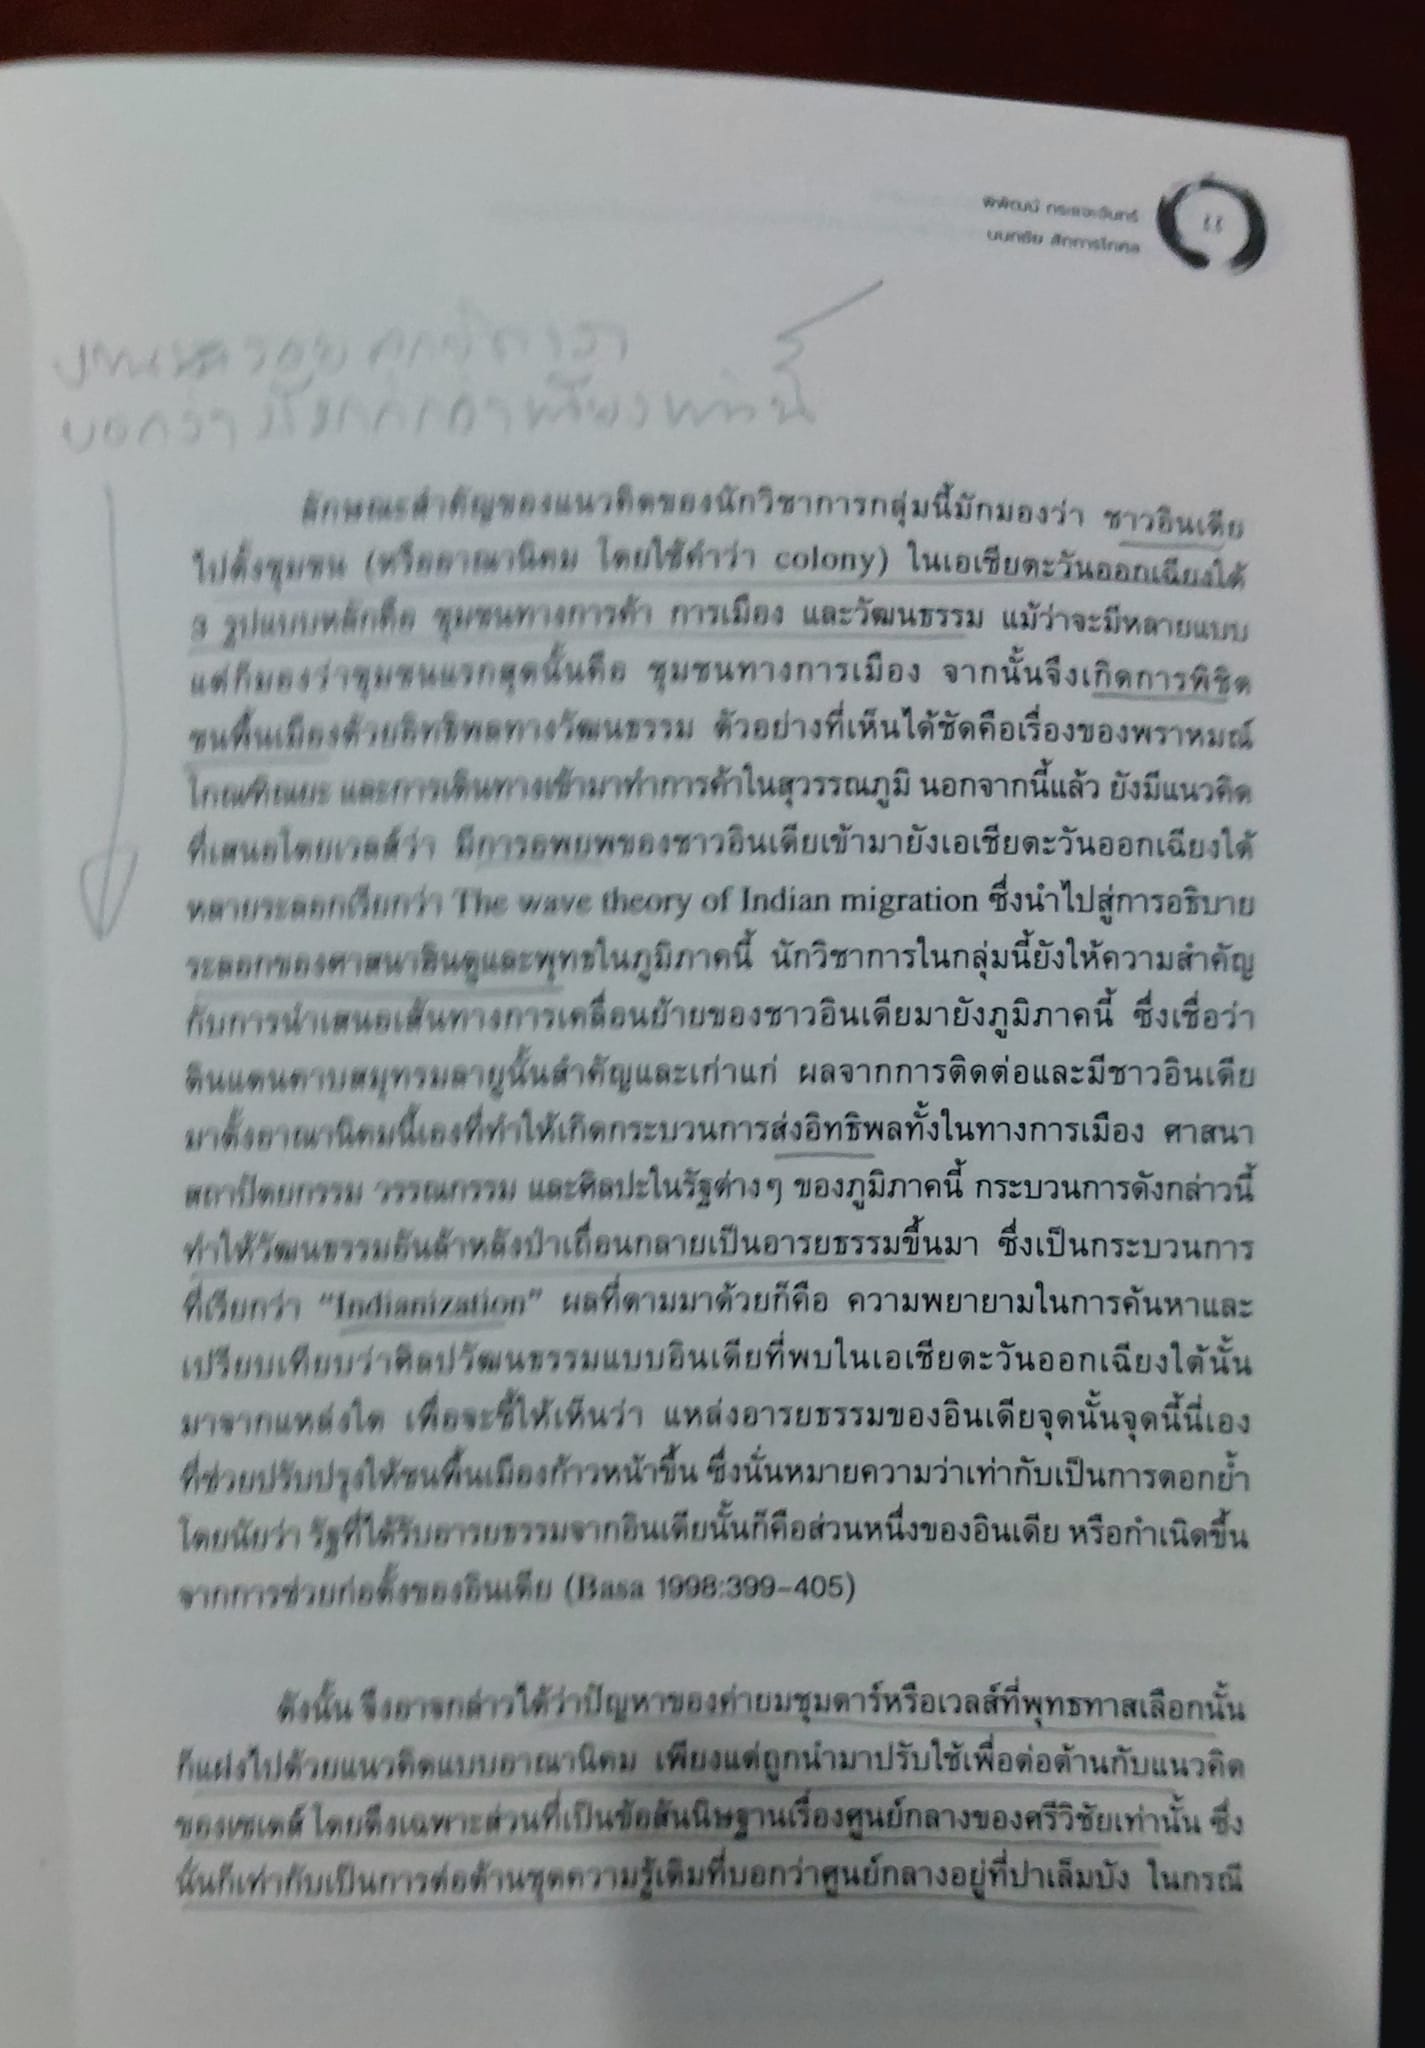 พิพัฒน์ กระแจะจันทร์
นนทชัย สักการโกศล
ลักษณะสำคัญของแนวคิดของนักวิชาการกลุ่มนี้มักมองว่า ชาวอินเดีย
ไปตั้งชุมชน (หรืออาณานิคม โดยใช้คำว่า colony) ในเอเชียตะวันออกเฉียงใต้
3 รูปแบบหลักคือ ชุมชนทางการค้า การเมือง และวัฒนธรรม แม้ว่าจะมีหลายแบบ
แต่ก็มองว่าชุมชนแรกสุดนั้นคือ ชุมชนทางการเมือง จากนั้นจึงเกิดการพิชิต
ชนพื้นเมืองด้วยอิทธิพลทางวัฒนธรรม ตัวอย่างที่เห็นได้ชัดคือเรื่องของพราหมณ์
โกณฑิณยะ และการเดินทางเข้ามาทำการค้าในสุวรรณภูมิ นอกจากนี้แล้ว ยังมีแนวคิด
ที่เสนอโดยเวลส์ว่า มีการอพยพของชาวอินเดียเข้ามายังเอเชียตะวันออกเฉียงใต้
หลายระลอกเรียกว่า The wave theory of Indian migration ซึ่งนำไปสู่การอธิบาย
ระลอกของศาสนาฮินดูและพุทธในภูมิภาคนี้ นักวิชาการในกลุ่มนี้ยังให้ความสำคัญ
กับการนำเสนอเส้นทางการเคลื่อนย้ายของชาวอินเดียมายังภูมิภาคนี้ ซึ่งเชื่อว่า
ดินแดนคาบสมุทรมลายูนั้นสำคัญและเก่าแก่ ผลจากการติดต่อและมีชาวอินเดีย
มาตั้งอาณานิคมนี้เองที่ทำให้เกิดกระบวนการส่งอิทธิพลทั้งในทางการเมือง ศาสนา
สถาปัตยกรรม วรรณกรรม และศิลปะในรัฐต่างๆ ของภูมิภาคนี้ กระบวนการดังกล่าวนี้
ทำให้วัฒนธรรมอันล้าหลังป่าเถื่อนกลายเป็นอารยธรรมขึ้นมา ซึ่งเป็นกระบวนการ
ที่เรียกว่า “Indianization” ผลที่ตามมาด้วยก็คือ ความพยายามในการค้นหาและ
เปรียบเทียบว่าศิลปวัฒนธรรมแบบอินเดียที่พบในเอเชียตะวันออกเฉียงใต้นั้น
มาจากแหล่งใด เพื่อจะชี้ให้เห็นว่า แหล่งอารยธรรมของอินเดียจุดนั้นจุดนี้นี่เอง
ที่ช่วยปรับปรุงให้ชนพื้นเมืองก้าวหน้าขึ้น ซึ่งนั่นหมายความว่าเท่ากับเป็นการตอกย้ำ
โดยนัยว่า รัฐที่ได้รับอารยธรรมจากอินเดียนั้นก็คือส่วนหนึ่งของอินเดีย หรือกำเนิดขึ้น
จากการช่วยก่อตั้งของอินเดีย (Basa 1998:399-405)
ดังนั้น จึงอาจกล่าวได้ว่าปัญหาของค่ายมชุมดาร์หรือเวลส์ที่พุทธทาสเลือกนั้น
ก็แฝงไปด้วยแนวคิดแบบอาณานิคม เพียงแต่ถูกนำมาปรับใช้เพื่อต่อต้านกับแนวคิด
ของเซเดส์ โดยดึงเฉพาะส่วนที่เป็นข้อสันนิษฐานเรื่องศูนย์กลางของศรีวิชัยเท่านั้น ซึ่ง
นั่นก็เท่ากับเป็นการต่อต้านชุดความรู้เดิมที่บอกว่าศูนย์กลางอยู่ที่ปาเล็มบัง ในกรณี